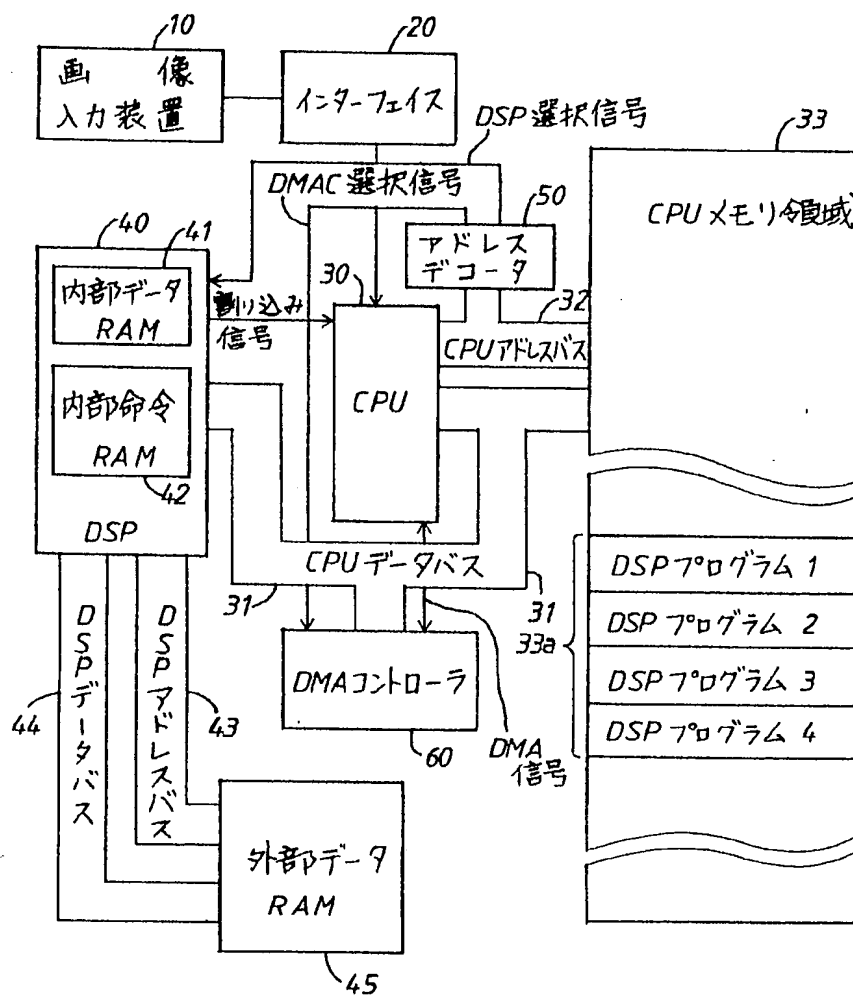 10
画像
入力装置
20
インターフェイス
DSP選択信号
33
DMAC選択信号
CPUメモリ領域
50
アドレス
デコータ
40
41
内部データ
RAM
割り込み
信号
30
CPU
32
CPUアドレスバス
内部命令
RAM
42
DSP
CPUデータバス
31
31
33a
DSPプログラム 1
DSPプログラム 2
DSPプログラム 3
DSPプログラム 4
DMAコントローラ
60
DMA
信号
44
DSPデータバス
DSPアドレスバス
43
外部データ
RAM
45